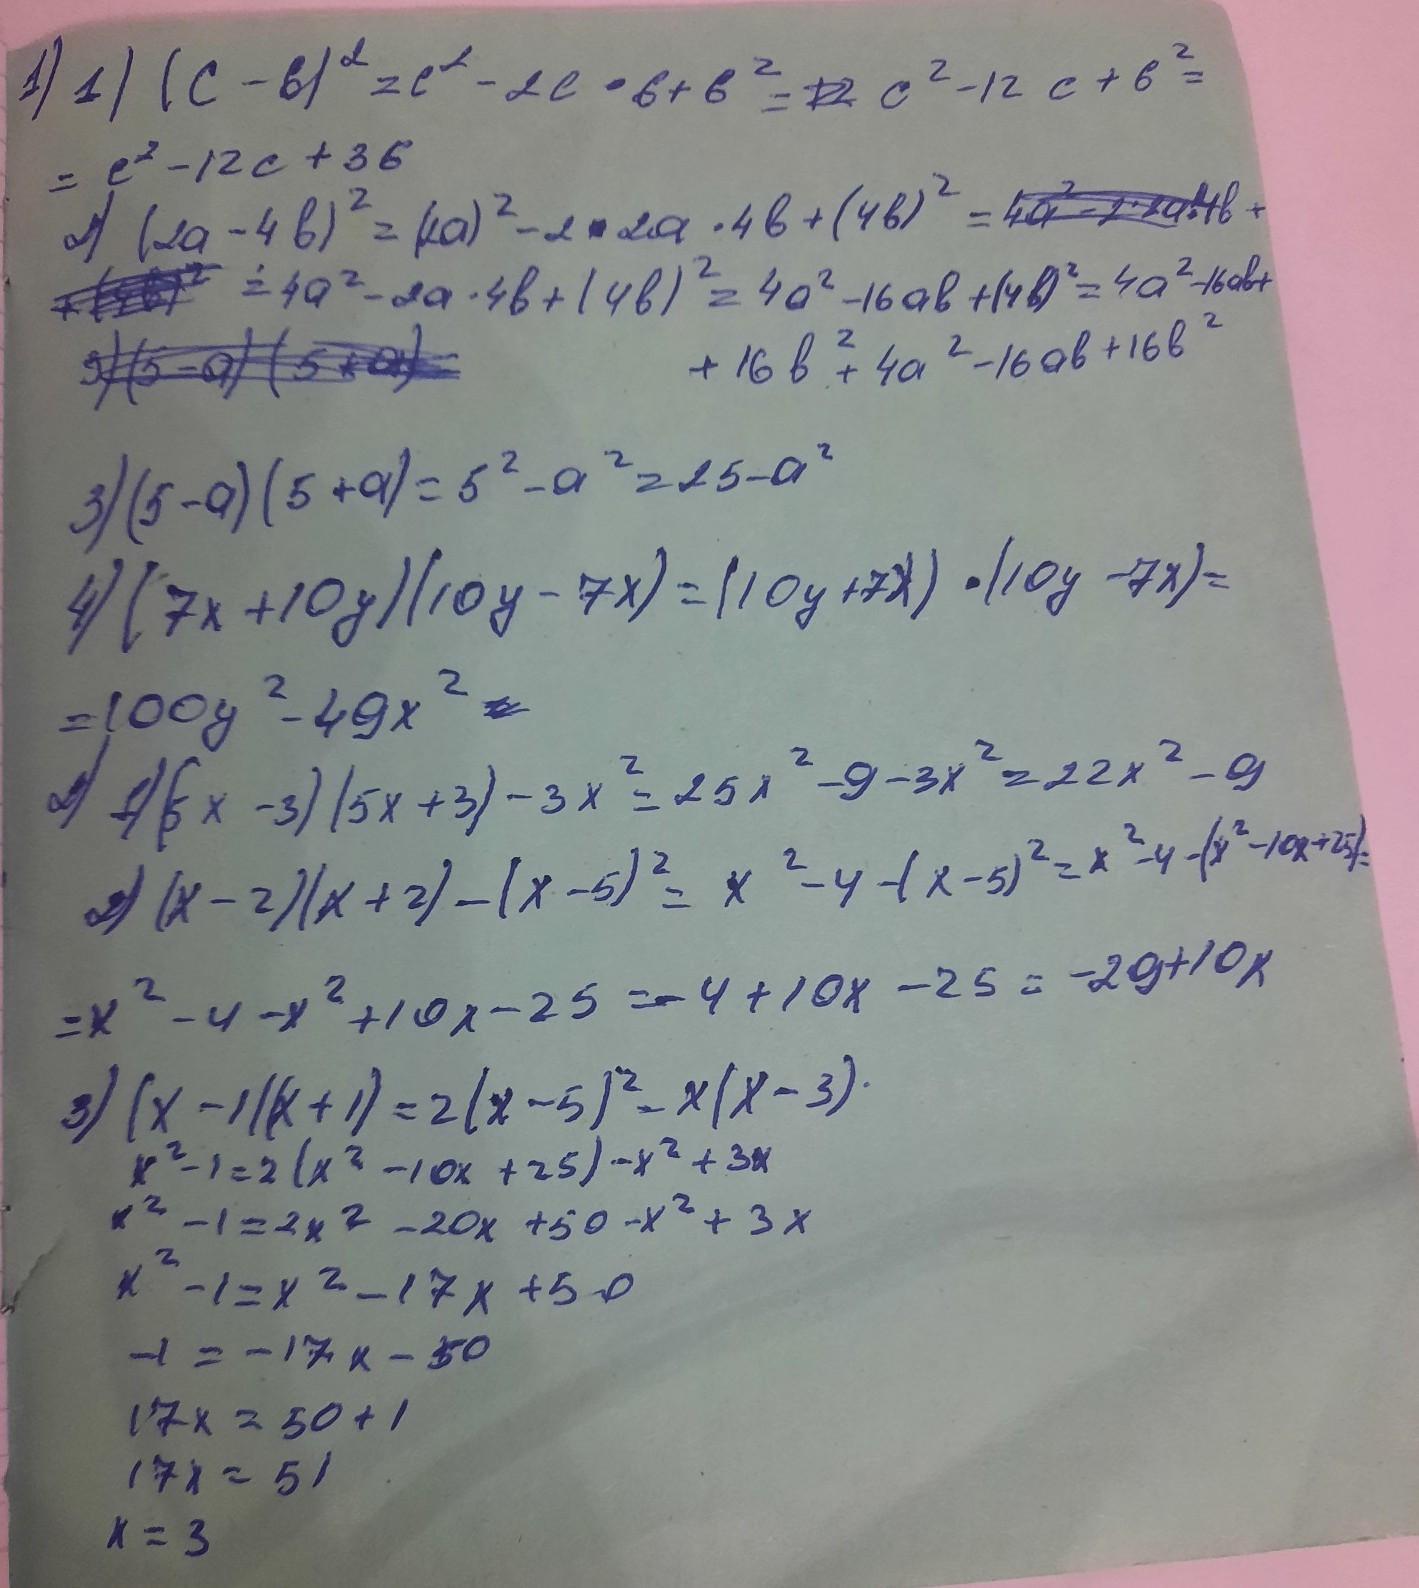 1) 1) (c - b)² = c² - 2c · b + b² = c² - 12c + b² =
= c² - 12c + 36
2) (2a - 4b)² = (2a)² - 2 · 2a · 4b + (4b)² =
= 4a² - 2a · 4b + (4b)² = 4a² - 16ab + (4b)² = 4a² - 16ab +
+ 16b² + 4a² - 16ab + 16b²
3) (5 - a)(5 + a)
3) (5 - a)(5 + a) = 5² - a² = 25 - a²
4) (7x + 10y)(10y - 7x) = (10y + 7x) · (10y - 7x) =
= 100y² - 49x²
2) 1) (5x - 3)(5x + 3) - 3x² = 25x² - 9 - 3x² = 22x² - 9
2) (x - 2)(x + 2) - (x - 5)² = x² - 4 - (x - 5)² = x² - 4 - (x² - 10x + 25) =
= x² - 4 - x² + 10x - 25 = -4 + 10x - 25 = -29 + 10x
3) (x - 1)(x + 1) = 2(x - 5)² - x(x - 3).
x² - 1 = 2(x² - 10x + 25) - x² + 3x
x² - 1 = 2x² - 20x + 50 - x² + 3x
x² - 1 = x² - 17x + 50
-1 = -17x - 50
17x = 50 + 1
17x = 51
x = 3